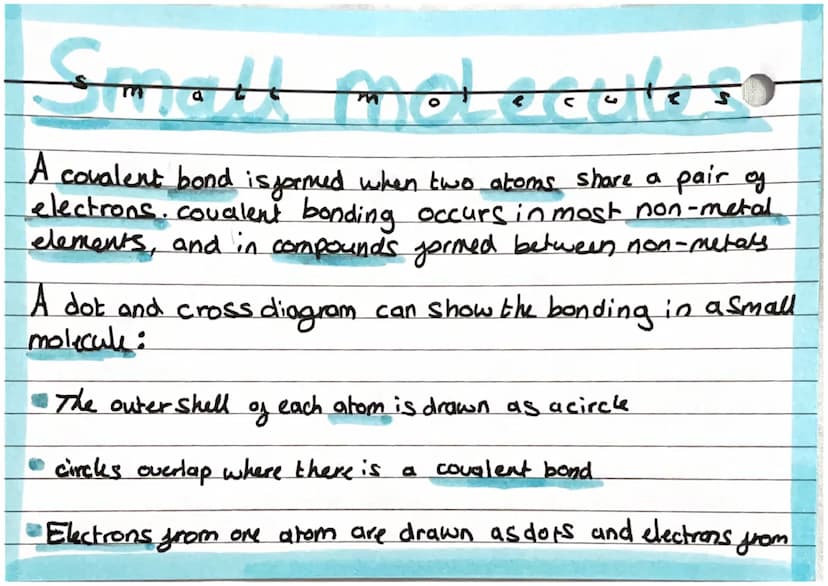 Small molecules
A covalent bond is formed when two atoms share a pair of
electrons. covalent bonding occurs in most non-metal
elements, and in compounds formed between non-metals
A dot and cross diagram can show the bonding in a small
molecule:
The outer shell of each atom is drawn as a circle
circles overlap where there is a covalent bond
Electrons from one atom are drawn as dots and electrons from